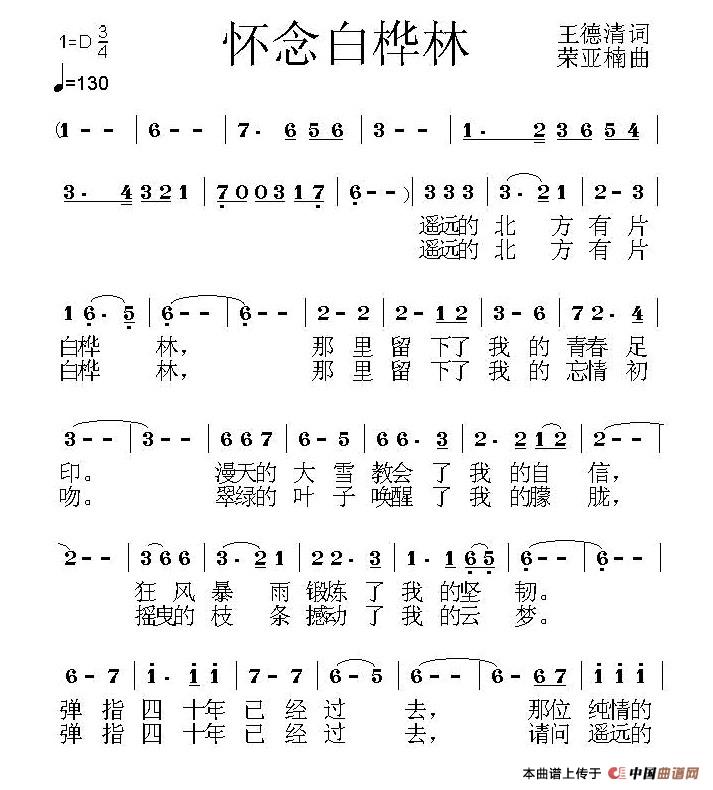 怀念白桦林
1=D 3/4
♩=130
王德清词
荣亚楠曲
(1 - - | 6 - - | 7 · 6 5 6 | 3 - - | 1 · 2 3 6 5 4 |
3 · 4 3 2 1 | 7 0 0 3 1 7 | 6 - - ) | 3 3 3 3 | 3 · 2 1 | 2 - 3 |
遥远的 北 方 有 片
遥远的 北 方 有 片
1 6 · 5 | 6 - - | 6 - - | 2 - 2 | 2 - 1 2 | 3 - 6 | 7 2 · 4 |
白桦 林， 那 里 留 下了 我 的 青春 足
白桦 林， 那 里 留 下了 我 的 忘情 初
3 - - | 3 - - | 6 6 7 | 6 - 5 | 6 6 · 3 | 2 · 2 1 2 | 2 - - |
印。 漫天的 大 雪 教会 了 我 的自 信，
吻。 翠绿的 叶 子 唤醒 了 我 的朦 胧，
2 - - | 3 6 6 | 3 · 2 1 | 2 2 · 3 | 1 · 1 6 5 | 6 - - | 6 - - |
狂 风 暴 雨 锻炼 了 我 的坚 韧。
摇曳的 枝 条 撼动 了 我 的云 梦。
6 - 7 | 1 · 1 1 | 7 - 7 | 6 - 5 | 6 - - | 6 - 6 7 | 1 1 1 |
弹 指 四 十年 已 经 过 去， 那位 纯情的
弹 指 四 十年 已 经 过 去， 请问 遥远的
本曲谱上传于 中国曲谱网